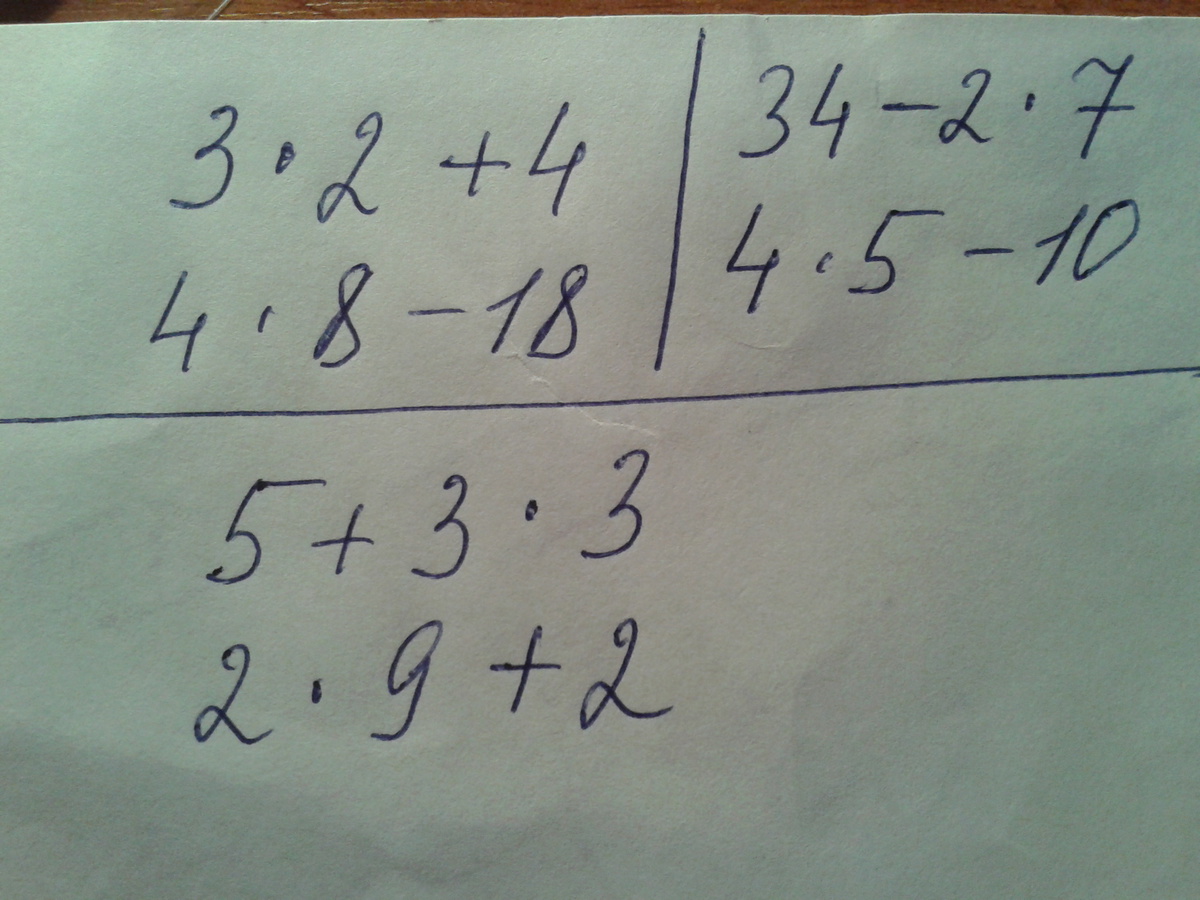 3 · 2 + 4
4 · 8 - 18
34 - 2 · 7
4 · 5 - 10
5 + 3 · 3
2 · 9 + 2